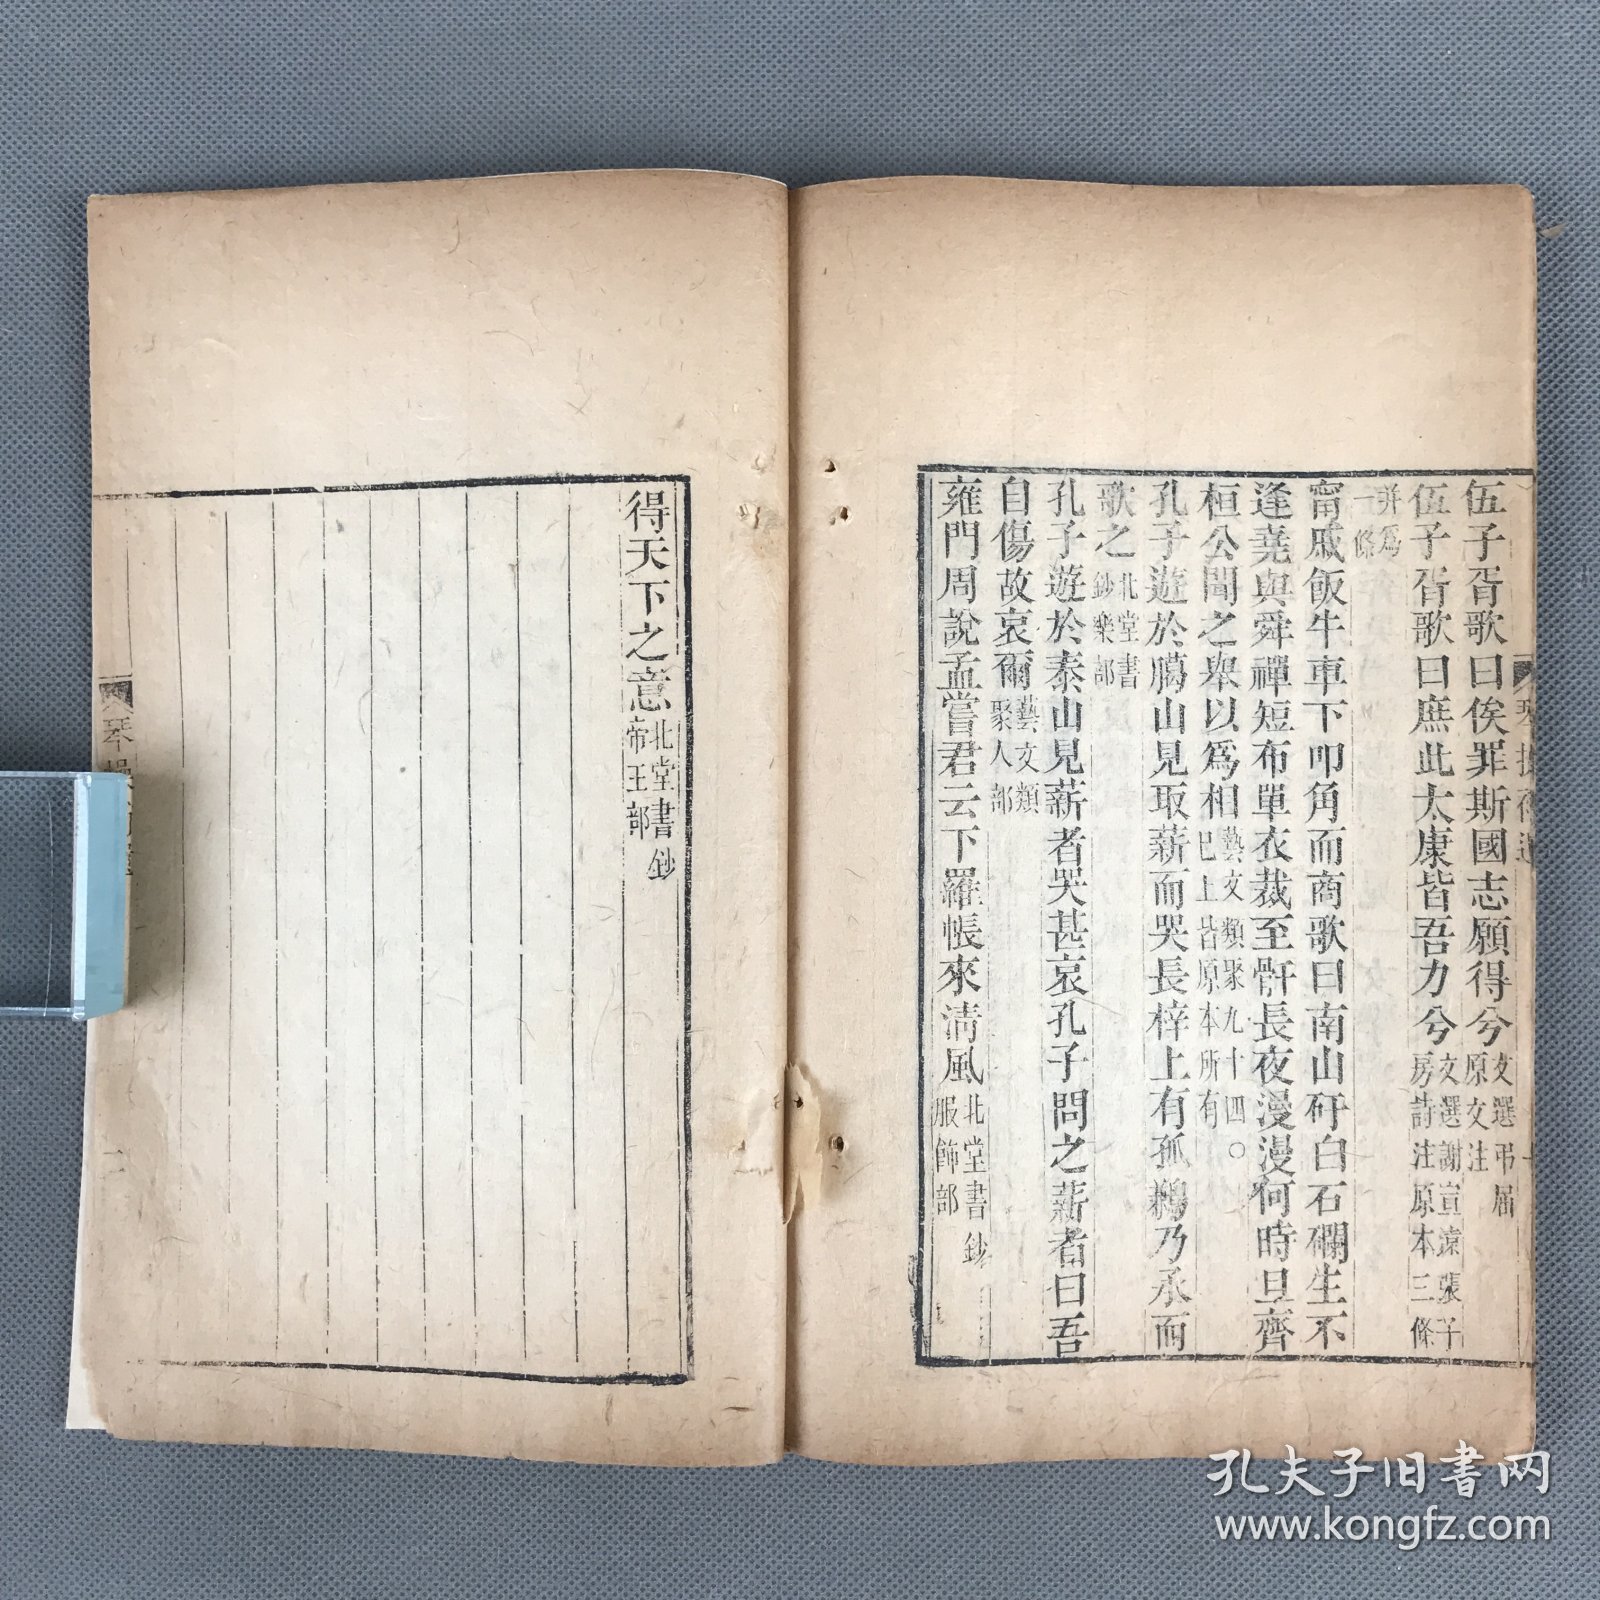 伍子胥歌曰俟罪斯國志願得兮文選弔屈原文注
伍子胥歌曰庶此太康皆吾力兮文選謝宣遠張子房詩注原本三條
并爲一條
甯戚飯牛車下叩角而商歌曰南山矸白石礀生不
逢堯與舜禪短布單衣裁至骭長夜漫漫何時旦齊
桓公聞之舉以爲相藝文類聚九十四〇巳上皆原本所有
孔子遊於䐗山見取薪而哭長梓上有孤鶵乃承而
歌之北堂書鈔樂部
孔子遊於泰山見薪者哭甚哀孔子問之薪者曰吾
自傷故哀爾藝文類聚人部
雍門周說孟嘗君云下羅帳來清風北堂書鈔服飾部
琴操補遺
得天下之意北堂書鈔帝王部
琴操補遺
二
孔夫子旧书网
www.kongfz.com